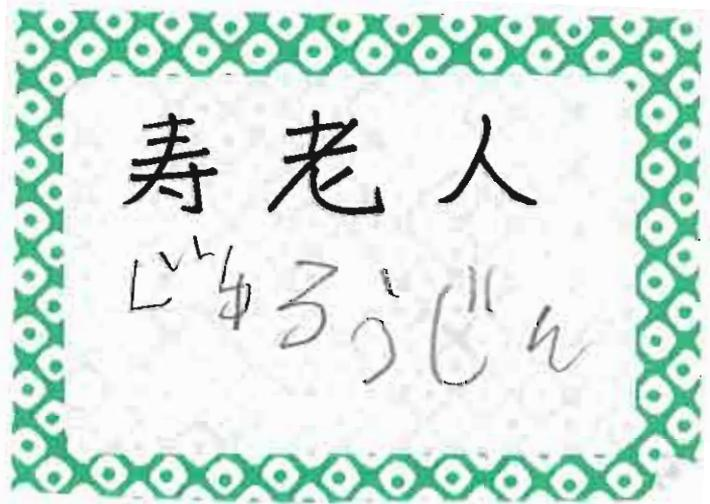 寿老人
じゅろうじん